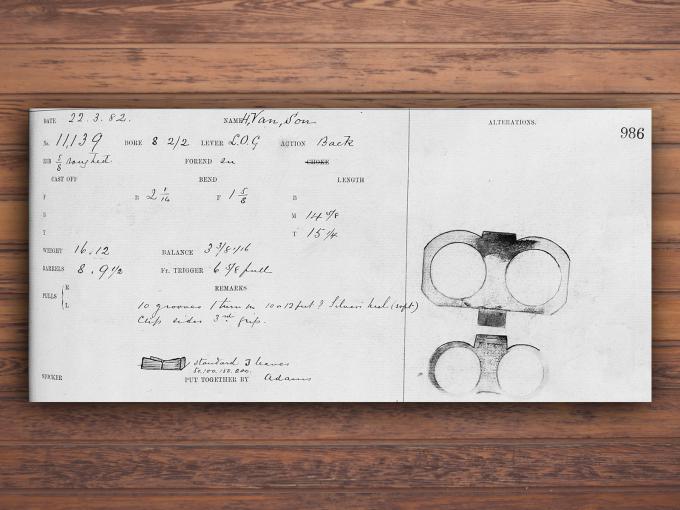 DATE 22.3.82. NAME H, Van, Son
ALTERATIONS.
986
No. 11,139 BORE 8 2/2 LEVER L.O.G ACTION Back
RIB 5/8 roughed FOREND en CHOKE
CAST OFF BEND LENGTH
F B 2 1/16 F 1 5/8 B
B M 14 5/8
T T 15 1/4
WEIGHT 16.12 BALANCE 3 3/8
BARRELS 8.9 1/2 Fr. TRIGGER 6 5/8 full
PULLS R L
REMARKS
10 grooves 1 turn in 10 Silvers heel (soft)
Clip sides 3rd grip.
standard 3 leaves
50.100.150.200.
STOCKER PUT TOGETHER BY Adams